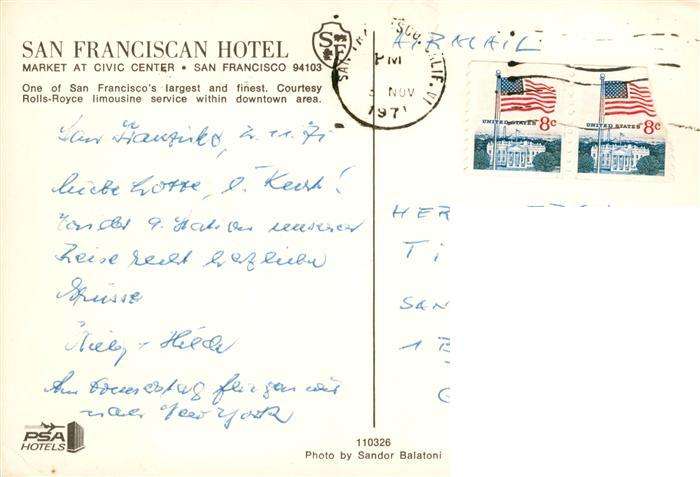 SAN FRANCISCAN HOTEL
MARKET AT CIVIC CENTER • SAN FRANCISCO 94103
One of San Francisco's largest and finest. Courtesy
Rolls-Royce limousine service within downtown area.
SF
PM
3 NOV
1971
AIRMAIL
UNITED STATES 8c
UNITED STATES 8c
San Franzisko, 2.11.71
Liebe Lotte, l. Kurt!
Von der 9. Station unserer
Reise recht herzliche
Grüsse
Hilde
Am Donnerstag fliegen wir
nach New York
HER
T
SAN
1 B
PSA
HOTELS
110326
Photo by Sandor Balatoni